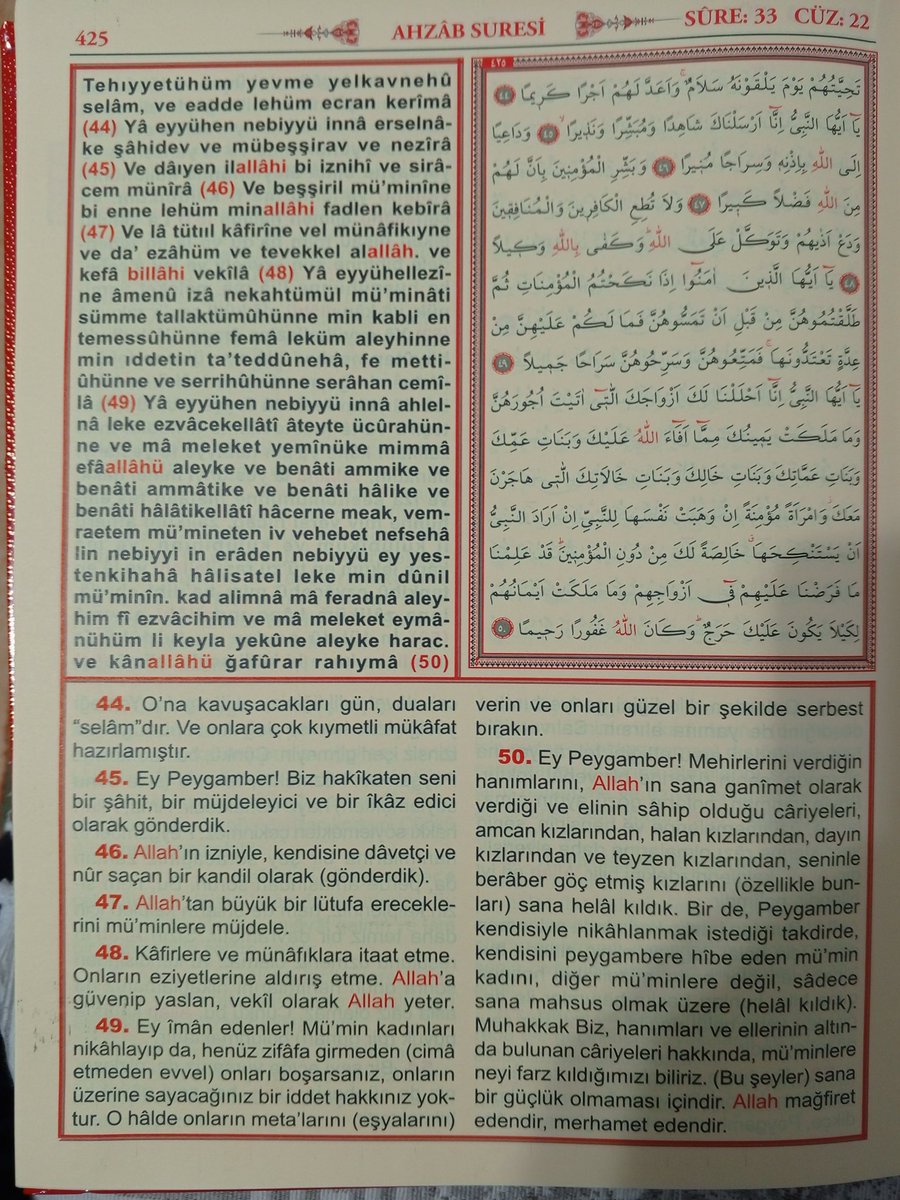 425
AHZÂB SURESİ
SÛRE: 33 CÜZ: 22
Tehıyyetühüm yevme yelkavnehû
selâm, ve eadde lehüm ecran kerîmâ
(44) Yâ eyyühen nebiyyü innâ erselnâ-
ke şâhidev ve mübeşşirav ve nezîrâ
(45) Ve dâıyen ilallâhi bi iznihî ve sirâ-
cem münîrâ (46) Ve beşşiril mü’minîne
bi enne lehüm minallâhi fadlen kebîrâ
(47) Ve lâ tütııl kâfirîne vel münâfikıyne
ve da’ ezâhüm ve tevekkel alallâh. ve
kefâ billâhi vekîlâ (48) Yâ eyyühellezî-
ne âmenû izâ nekahtümül mü’minâti
sümme tallaktümûhünne min kabli en
temessûhünne femâ leküm aleyhinne
min ıddetin ta’teddûnehâ, fe metti-
ûhünne ve serrihûhünne serâhan cemî-
lâ (49) Yâ eyyühen nebiyyü innâ ahlel-
nâ leke ezvâcekellâtî âteyte ücûrahün-
ne ve mâ meleket yemînüke mimmâ
efâallâhü aleyke ve benâti ammike ve
benâti ammâtike ve benâti hâlike ve
benâti hâlâtikellâtî hâcerne meak, vem-
raetem mü’mineten iv vehebet nefsehâ
lin nebiyyi in erâden nebiyyü ey yes-
tenkihahâ hâlisatel leke min dûnil
mü’minîn. kad alimnâ mâ feradnâ aley-
him fî ezvâcihim ve mâ meleket eymâ-
nühüm li keyla yekûne aleyke harac.
ve kânallâhü ğafûrar rahıymâ (50)
٤٢٥
تَحِيَّتُهُمْ يَوْمَ يَلْقَوْنَهُ سَلَامٌۚ وَاَعَدَّ لَهُمْ اَجْرًا كَرِيمًا ٤٤
يَٓا اَيُّهَا النَّبِيُّ اِنَّٓا اَرْسَلْنَاكَ شَاهِدًا وَمُبَشِّرًا وَنَذِيرًاۙ ٤٥ وَدَاعِيًا
اِلَى اللّٰهِ بِاِذْنِهِ وَسِرَاجًا مُنِيرًا ٤٦ وَبَشِّرِ الْمُؤْمِنِينَ بِاَنَّ لَهُمْ
مِنَ اللّٰهِ فَضْلًا كَبِيرًا ٤٧ وَلَا تُطِعِ الْكَافِرِينَ وَالْمُنَافِقِينَ
وَدَعْ اَذٰيهُمْ وَتَوَكَّلْ عَلَى اللّٰهِۜ وَكَفٰى بِاللّٰهِ وَكِيلًا
٤٨ يَٓا اَيُّهَا الَّذِينَ اٰمَنُٓوا اِذَا نَكَحْتُمُ الْمُؤْمِنَاتِ ثُمَّ
طَلَّقْتُمُوهُنَّ مِنْ قَبْلِ اَنْ تَمَسُّوهُنَّ فَمَا لَكُمْ عَلَيْهِنَّ مِنْ
عِدَّةٍ تَعْتَدُّونَهَاۚ فَمَتِّعُوهُنَّ وَسَرِّحُوهُنَّ سَرَاحًا جَمِيلًا ٤٩
يَٓا اَيُّهَا النَّبِيُّ اِنَّٓا اَحْلَلْنَا لَكَ اَزْوَاجَكَ الّٰتِٓي اٰتَيْتَ اُجُورَهُنَّ
وَمَا مَلَكَتْ يَمِينُكَ مِمَّٓا اَفَٓاءَ اللّٰهُ عَلَيْكَ وَبَنَاتِ عَمِّكَ
وَبَنَاتِ عَمَّاتِكَ وَبَنَاتِ خَالِكَ وَبَنَاتِ خَالَاتِكَ الّٰتِي هَاجَرْنَ
مَعَكَۘ وَامْرَاَةً مُؤْمِنَةً اِنْ وَهَبَتْ نَفْسَهَا لِلنَّبِيِّ اِنْ اَرَادَ النَّبِيُّ
اَنْ يَسْتَنْكِحَهَاۗ خَالِصَةً لَكَ مِنْ دُونِ الْمُؤْمِنِينَۜ قَدْ عَلِمْنَا
مَا فَرَضْنَا عَلَيْهِمْ فِٓي اَزْوَاجِهِمْ وَمَا مَلَكَتْ اَيْمَانُهُمْ
لِكَيْلَا يَكُونَ عَلَيْكَ حَرَجٌۜ وَكَانَ اللّٰهُ غَفُورًا رَحِيمًا ٥٠
44. O’na kavuşacakları gün, duaları
“selâm”dır. Ve onlara çok kıymetli mükâfat
hazırlamıştır.
45. Ey Peygamber! Biz hakîkaten seni
bir şâhit, bir müjdeleyici ve bir îkâz edici
olarak gönderdik.
46. Allah’ın izniyle, kendisine dâvetçi ve
nûr saçan bir kandil olarak (gönderdik).
47. Allah’tan büyük bir lütufa erecekle-
rini mü’minlere müjdele.
48. Kâfirlere ve münâfıklara itaat etme.
Onların eziyetlerine aldırış etme. Allah’a
güvenip yaslan, vekîl olarak Allah yeter.
49. Ey îmân edenler! Mü’min kadınları
nikâhlayıp da, henüz zifâfa girmeden (cimâ
etmeden evvel) onları boşarsanız, onların
üzerine sayacağınız bir iddet hakkınız yok-
tur. O hâlde onların meta’larını (eşyalarını)
verin ve onları güzel bir şekilde serbest
bırakın.
50. Ey Peygamber! Mehirlerini verdiğin
hanımlarını, Allah’ın sana ganîmet olarak
verdiği ve elinin sâhip olduğu câriyeleri,
amcan kızlarından, halan kızlarından, dayın
kızlarından ve teyzen kızlarından, seninle
berâber göç etmiş kızlarını (özellikle bun-
ları) sana helâl kıldık. Bir de, Peygamber
kendisiyle nikâhlanmak istediği takdirde,
kendisini peygambere hîbe eden mü’min
kadını, diğer mü’minlere değil, sâdece
sana mahsus olmak üzere (helâl kıldık).
Muhakkak Biz, hanımları ve ellerinin altın-
da bulunan câriyeleri hakkında, mü’minlere
neyi farz kıldığımızı biliriz. (Bu şeyler) sana
bir güçlük olmaması içindir. Allah mağfiret
edendir, merhamet edendir.